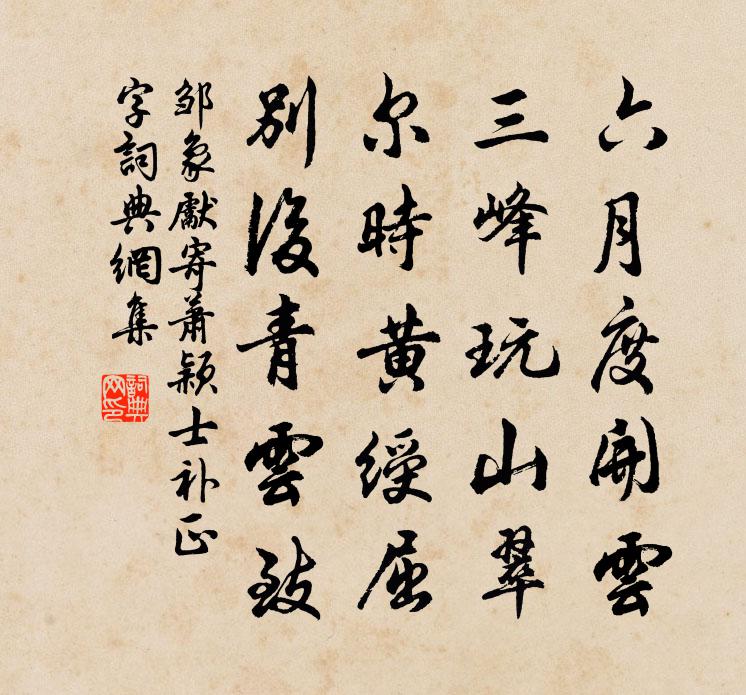 六月度開雲
三峰玩山翠
尔時黄綬屈
別後青雲致
邹象獻寄蕭穎士补正
字詞典網集
詞典網印